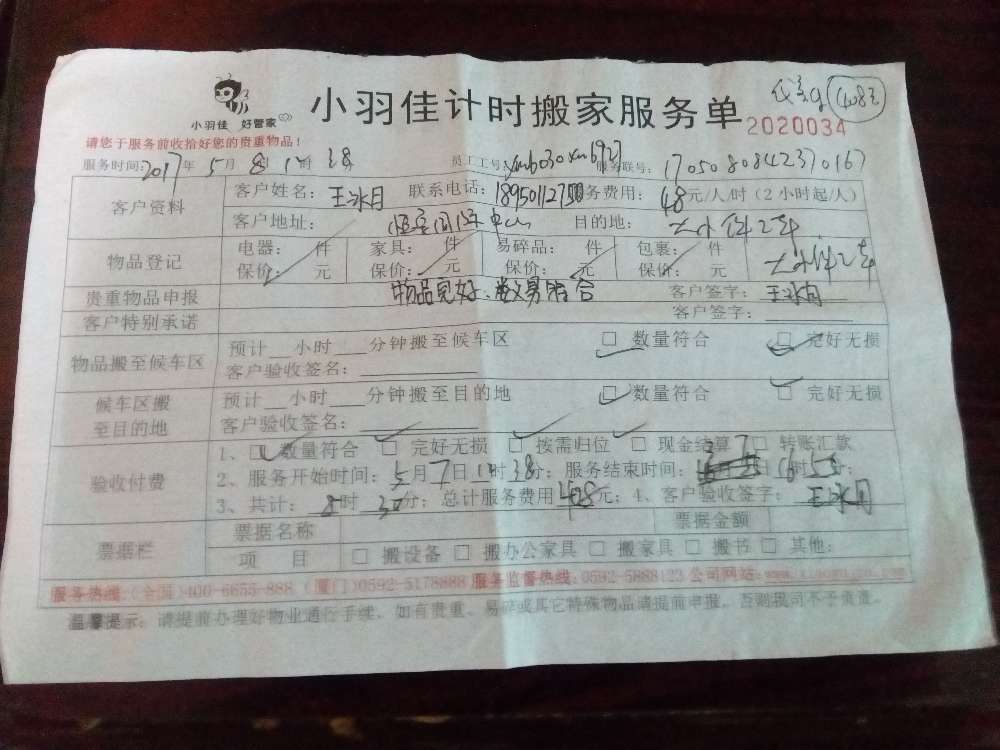 小羽佳计时搬家服务单
408元
小羽佳 好管家
2020034
请您于服务前收拾好您的贵重物品！
服务时间：2017年5月8日 时38 员工工号： 服务联号：1705080842370167
客户资料 客户姓名：王冰月 联系电话： 服务费用：48元/人/时（2小时起/人）
客户地址： 目的地：大小件2车
物品登记 电器： 件 家具： 件 易碎品： 件 包裹： 件 大小件2车
保价： 元 保价： 元 保价： 元 保价： 元
贵重物品申报 物品完好、数男符合 客户签字：王冰月
客户特别承诺 客户签字：
物品搬至候车区 预计 小时 分钟搬至候车区 □ 数量符合 □ 完好无损
客户验收签名：
候车区搬至目的地 预计 小时 分钟搬至目的地 □ 数量符合 □ 完好无损
客户验收签名：
验收付费 1、□ 数量符合 □ 完好无损 □ 按需归位 □ 现金结算 □ 转账汇款
2、服务开始时间：5月7日 时38分；服务结束时间： 日 时 分；
3、共计：8时30分；总计服务费用408元；4、客户验收签字：王冰月
票据栏 票据名称 票据金额
项 目 □ 搬设备 □ 搬办公家具 □ 搬家具 □ 搬书 □ 其他：
服务热线：（全国）400-6655-888 （厦门）0592-5178888 服务监督热线：0592-5888123 公司网站：
温馨提示：请提前办理好物业通行手续。如有贵重、易碎或其它特殊物品请提前申报。否则我司不予负责。